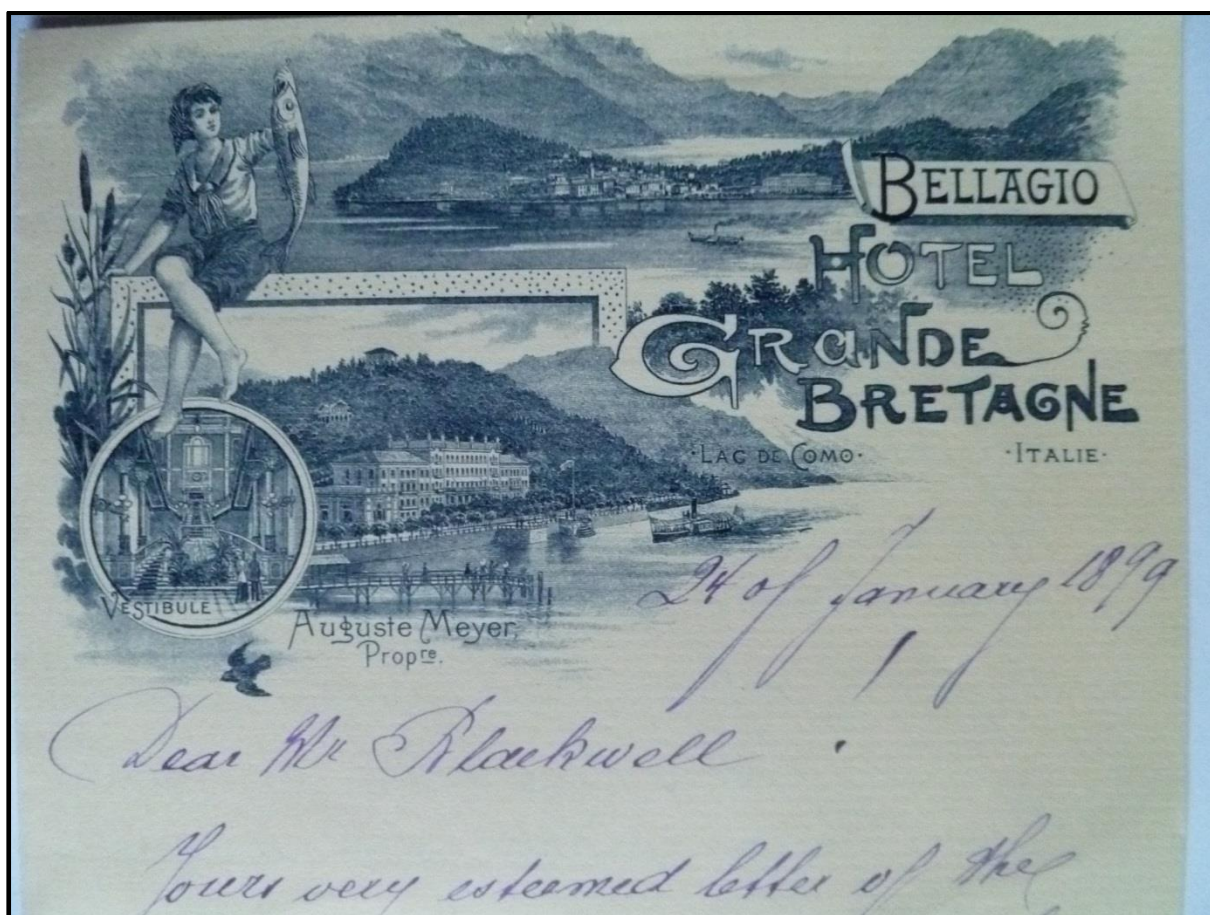 BELLAGIO
HOTEL
GRANDE
BRETAGNE
·LAC DE COMO· ·ITALIE·
VESTIBULE
Auguste Meyer,
Propre.
24 of January 1899
Dear Mr Blackwell
Yours very esteemed letter of the